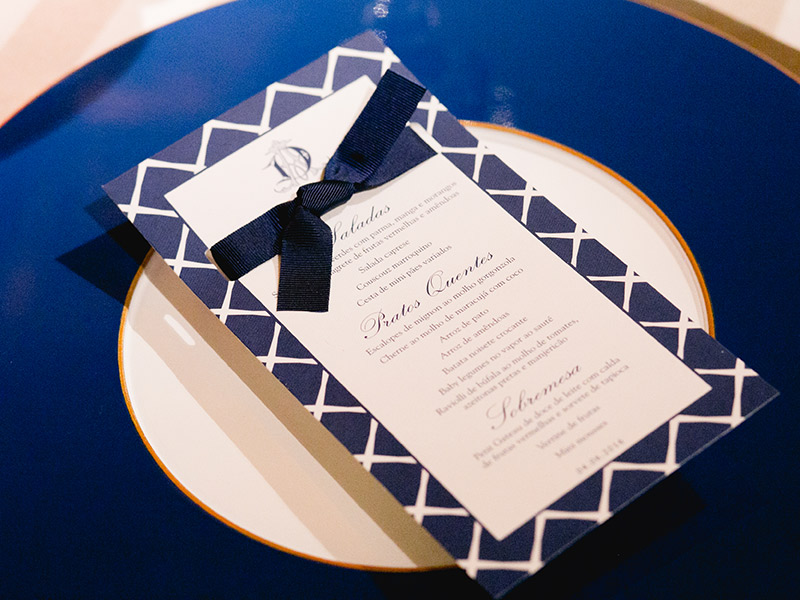 Saladas
erdes com parma, manga e morangos
agrete de frutas vermelhas e amêndoas
Salada caprese
Couscouz marroquino
Cesta de mini pães variados
Pratos Quentes
Escalopes de mignon ao molho gorgonzola
Cherne ao molho de maracujá com coco
Arroz de pato
Arroz de amêndoas
Batata noisete crocante
Baby legumes no vapor ao santê
Ravioli de búfala ao molho de tomates,
azeitonas pretas e manjericão
Sobremesa
Petit Gateau de doce de leite com calda
de frutas vermelhas e sorvete de tapioca
Verrine de frutas
Mini mousses